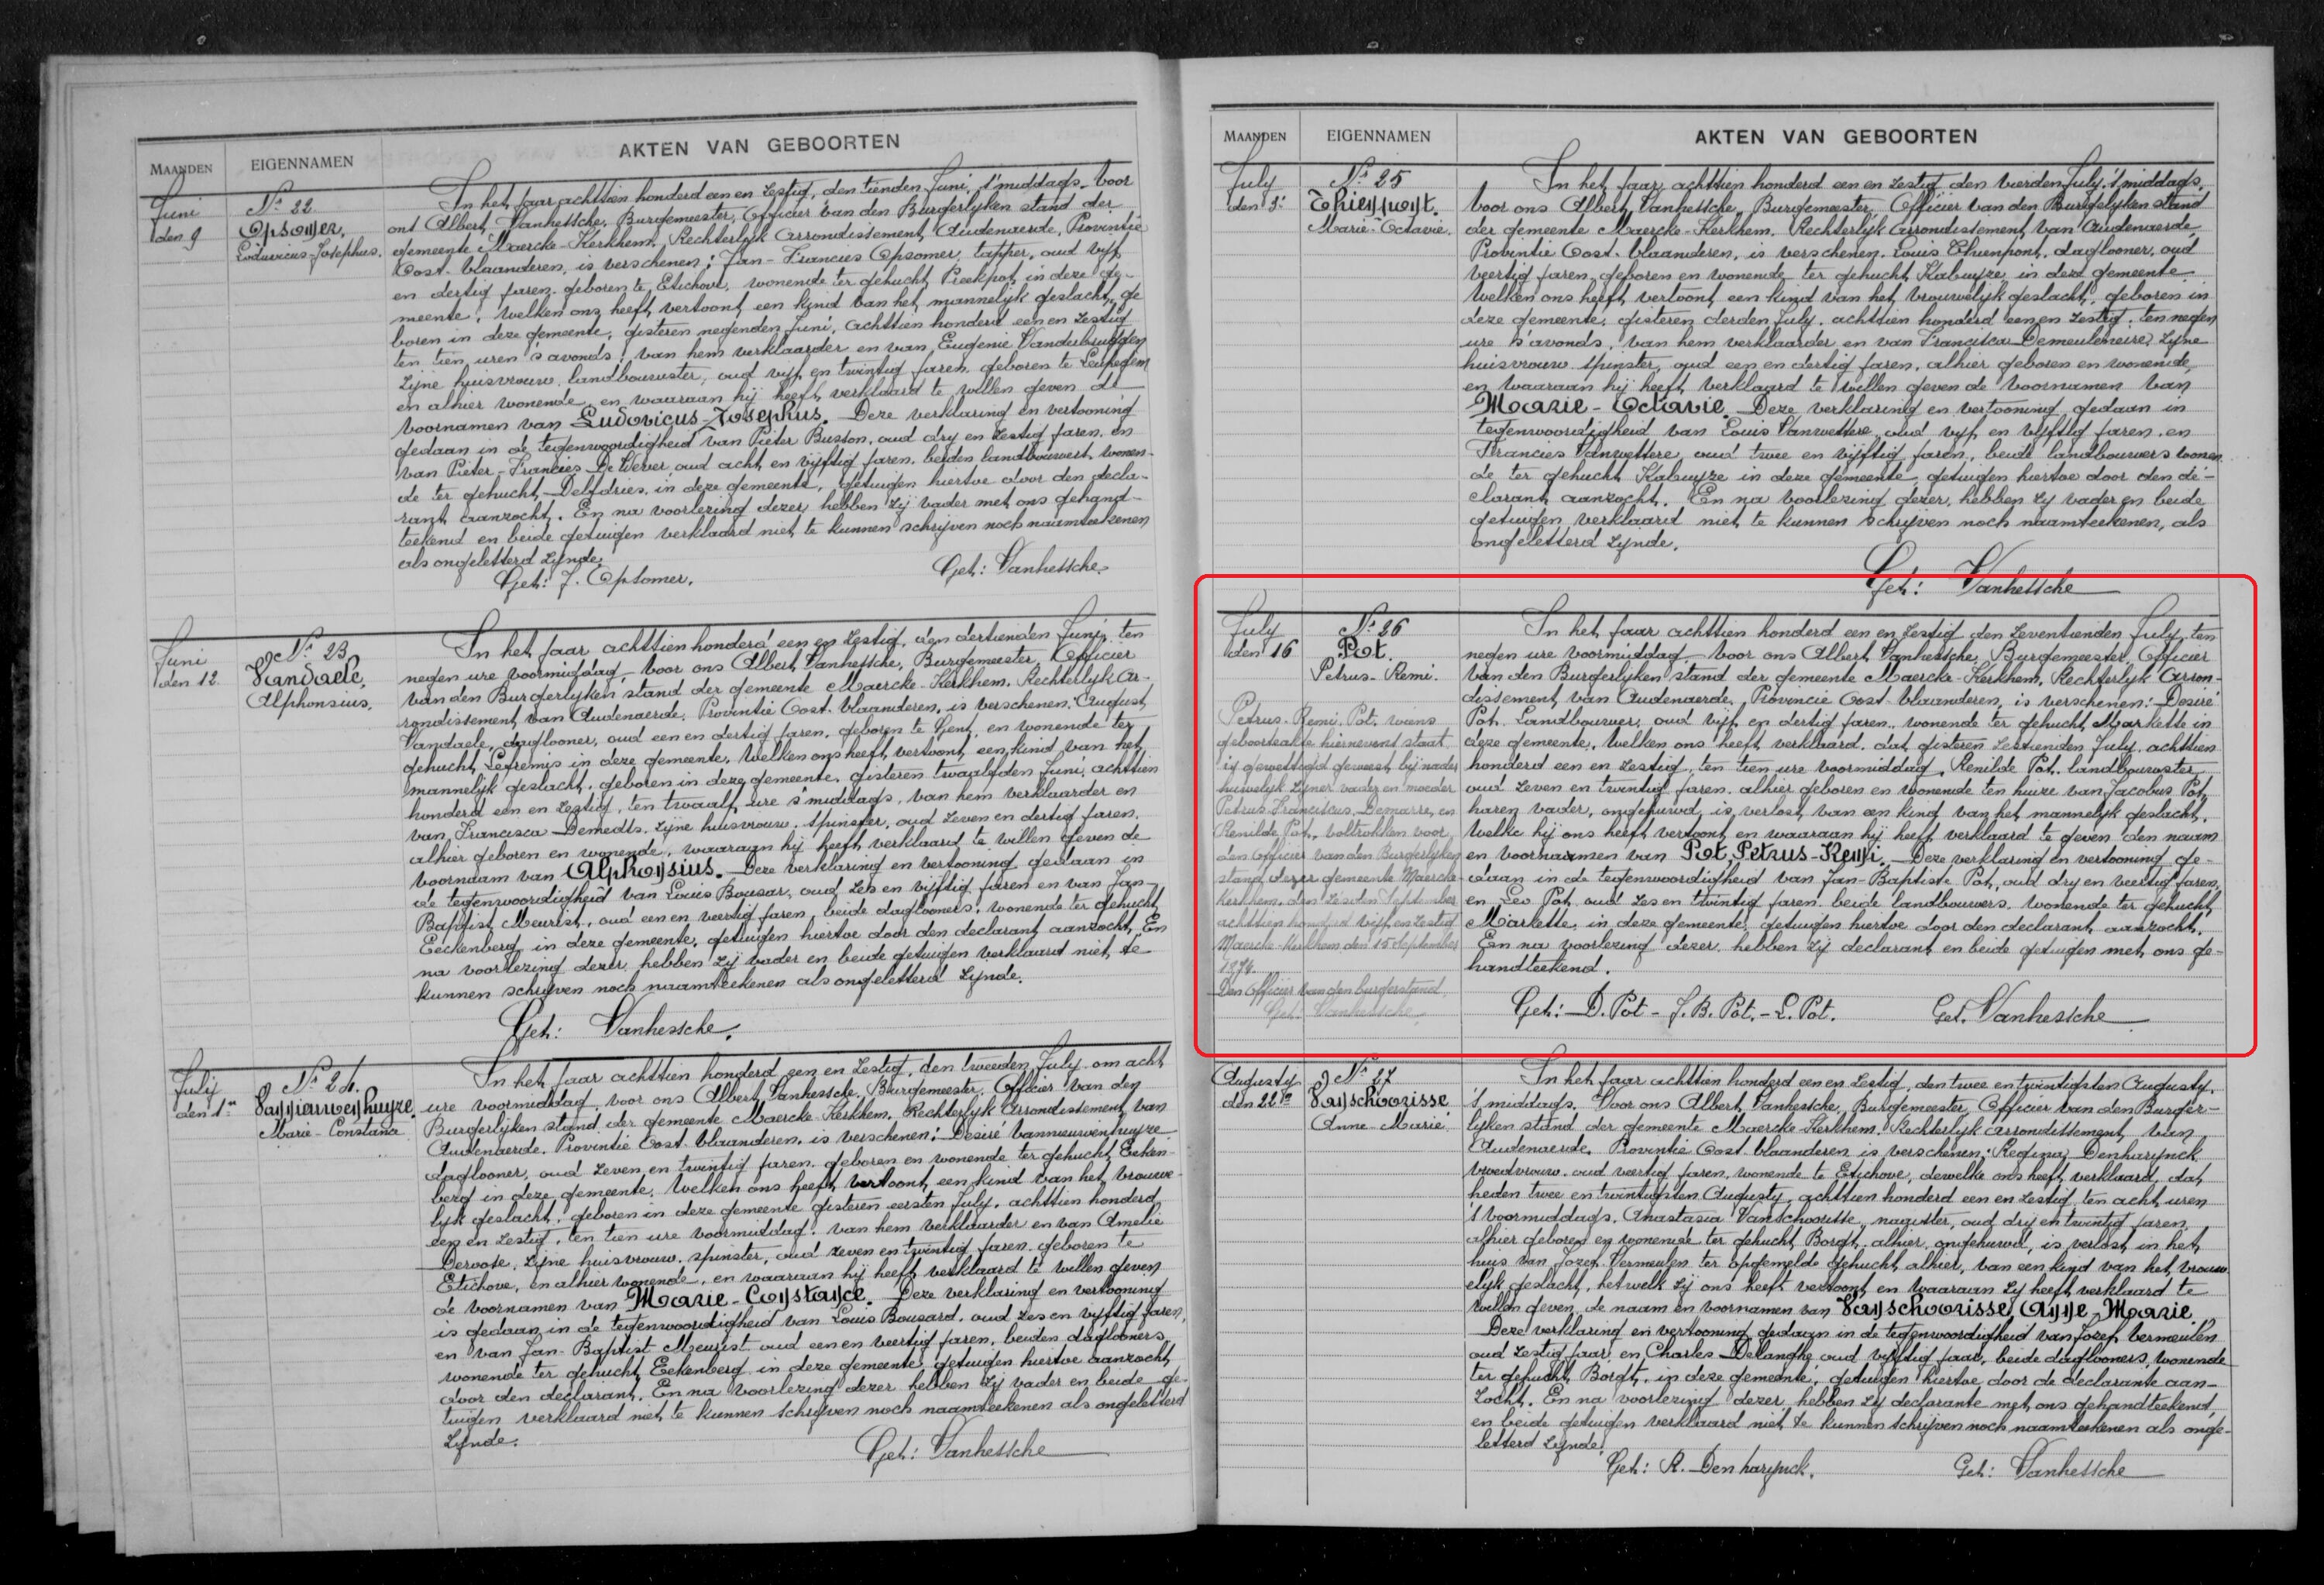 MAANDEN
EIGENNAMEN
AKTEN VAN GEBOORTEN
Juni
den 9
Nr 22
Opsomer,
Ludovicus-Josephus.
In het jaar achttien honderd een en zestig, den tienden Juni, 's middags. Voor
ons Albert, Vanhessche, Burgemeester, Officier van den Burgerlyken stand der
gemeente Maercke-Kerkhem, Rechterlyk Arrondissement, Audenaerde, Provintie
Oost-Vlaanderen, is verschenen: Jan-Francies Opsomer, tapper, oud vyf
en dertig jaren, geboren te Etichove, wonende ter gehucht, Preekpot, in deze ge-
meente, welken ons heeft vertoont een kind van het mannelyk geslacht, ge
boren in deze gemeente, gisteren negenden Juni, achttien honderd een en zestig
ten tien uren s'avonds, van hem verklaarder en van Eugenie Vanderbrugghen
zyne huisvrouw, landbouwster, oud vyf en twintig jaren, geboren te Leupegem
en alhier wonende, en waaraan hij heeft verklaard te willen geven de
voornamen van Ludovicus-Josephus. Deze verklaring en vertooning
gedaan in de tegenwoordigheid van Pieter Busson, oud dry en zestig jaren, en
van Pieter-Francies De Wever, oud acht en vijftig jaren, beiden landbouwers, wonen-
de ter gehucht, Delfdries, in deze gemeente, getuigen hiertoe door den decla-
rant aanzocht. En na voorlezing dezer hebben zij vader met ons gehand-
teekend en beide getuigen verklaard niet te kunnen schrijven noch naamteekenen
als ongeletterd zynde.
Get: J. Opsomer.
Get: Vanhessche.
Juni
den 12
Nr 23
Vandaele,
Alphonsius.
In het jaar achttien honderd een en zestig, den dertienden Juni, ten
negen ure voormiddag, voor ons Albert, Vanhessche, Burgemeester, Officier
van den Burgerlyken stand der gemeente Maercke-Kerkhem, Rechterlyk Ar-
rondissement van Audenaerde, Provintie Oost-Vlaanderen, is verschenen: August,
Vandaele, daglooner, oud een en dertig jaren, geboren te Gent, en wonende ter
gehucht, Lepremis in deze gemeente, welken ons heeft vertoont, een kind van het
mannelyk geslacht, geboren in deze gemeente, gisteren twaalfden Juni, achttien
honderd een en zestig, ten twaalf ure s'middags, van hem verklaarder en
van Francisca Demedts, zyne huisvrouw, spinster, oud zeven en dertig jaren,
alhier geboren en wonende, waaraan hij heeft verklaard te willen geven de
voornaam van Alphonsius. Deze verklaring en vertooning gedaan in
de tegenwoordigheid van Louis Bousar, oud zes en vijftig jaren en van Jan-
Baptist Meurist, oud een en veertig jaren, beide daglooners, wonende ter gehucht
Eeckenberg in deze gemeente, getuigen hiertoe door den declarant aanzocht. En
na voorlezing dezer, hebben zij vader en beide getuigen verklaard niet te
kunnen schrijven noch naamteekenen als ongeletterd zynde.
Get: Vanhessche.
July
den 1n
Nr 24.
Vannieuwenhuyze.
Marie-Constance
In het jaar achttien honderd een en zestig, den tweeden July om acht
ure voormiddag, voor ons Albert, Vanhessche, Burgemeester, Officier van den
Burgerlyken stand der gemeente Maercke-Kerkhem, Rechterlyk Arrondissement van
Audenaerde, Provintie Oost-Vlaanderen, is verschenen: Desiré Vannieuwenhuyze
daglooner, oud zeven en twintig jaren, geboren en wonende ter gehucht, Eeken-
berg in deze gemeente, welken ons heeft vertoont een kind van het vrouwe-
lyk geslacht, geboren in deze gemeente gisteren eersten July, achttien honderd
een en zestig, ten tien ure voormiddag, van hem verklaarder en van Amelie
Dervose, zyne huisvrouw, spinster, oud zeven en twintig jaren, geboren te
Etichove, en alhier wonende, en waaraan hij heeft verklaard te willen geven
de voornamen van Marie-Constance. Deze verklaring en vertooning
is gedaan in de tegenwoordigheid van Louis Bousard, oud zes en vijftig jaren,
en van Jan-Baptist Meurist oud een en veertig jaren, beiden daglooners,
wonende ter gehucht, Eekenberg in deze gemeente, getuigen hiertoe aanzocht
door den declarant. En na voorlezing dezer hebben zij vader en beide ge-
tuigen verklaard niet te kunnen schrijven noch naamteekenen als ongeletterd
zynde.
Get: Vanhessche
MAANDEN
EIGENNAMEN
AKTEN VAN GEBOORTEN
July
den 3:
Nr 25
Thienpont.
Marie-Octavie.
In het jaar achttien honderd een en zestig den vierden July, 's middags,
voor ons Albert, Vanhessche, Burgemeester, Officier van den Burgerlyken stand
der gemeente Maercke-Kerkhem, Rechterlyk Arrondissement, van Audenaerde
Provintie Oost-Vlaanderen, is verschenen, Louis Thienpont, daglooner, oud
veertig jaren, geboren en wonende ter gehucht, Kabuyze in deze gemeente
welken ons heeft, vertoont een kind van het, vrouwelyk geslacht, geboren in
deze gemeente, gisteren derden July, achttien honderd een en zestig, ten negen
ure s'avonds, van hem verklaarder en van Francisca Demeulemeire, zyne
huisvrouw, spinster, oud een en dertig jaren, alhier geboren en wonende,
en waaraan hij heeft verklaard te willen geven de voornamen van
Marie-Octavie. Deze verklaring en vertooning gedaan in
tegenwoordigheid van Louis Vanwettere, oud vijf en vijftig jaren, en
Francies Vanwettere, oud twee en vijftig jaren, beide landbouwers wonen
de ter gehucht, Kabuyze in deze gemeente, getuigen hiertoe door den de-
clarant aanzocht. En na voorlezing dezer, hebben zy vader en beide
getuigen verklaard niet te kunnen schrijven noch naamteekenen, als
ongeletterd zynde.
Get: Vanhessche
July
den 16
Nr 26
Pot.
Petrus-Remi.
Petrus-Remi Pot, wiens
geboorteakte hiernevens staat
is gewettigd geweest bij nader
huwelijk zijner vader en moeder
Petrus-Franciscus Demarre, en
Renilde Pot, voltrokken voor
den Officier van den Burgerlyken
stand dezer gemeente Maercke-
Kerkhem, den zesden September
achttien honderd vijf en zestig
Maercke-Kerkhem den 15 September
1874.
Den Officier van den burgerstand,
Get. Vanhessche.
In het jaar achttien honderd een en zestig den zeventienden July, ten
negen ure voormiddag. Voor ons Albert Vanhessche Burgemeester, Officier
van den Burgerlyken stand der gemeente Maercke-Kerkhem, Rechterlyk Arron-
dissement, van Audenaerde, Provincie Oost-Vlaanderen, is verschenen: Desiré
Pot, Landbouwer, oud vyf en dertig jaren, wonende ter gehucht, Markette in
deze gemeente, welken ons heeft verklaard, dat gisteren zestienden July, achttien
honderd een en zestig, ten tien ure voormiddag, Renilde Pot, landbouwster,
oud zeven en twintig jaren, alhier geboren en wonende ten huize van Jacobus Pot,
haren vader, ongehuwd, is verlost van een kind van het mannelyk geslacht,
welke hij ons heeft vertoont, en waaraan hij heeft verklaard te geven den naam
en voornamen van Pot, Petrus-Remi. Deze verklaring en vertooning ge-
daan in de tegenwoordigheid van Jan-Baptiste Pot, oud dry en veertig jaren,
en Leo Pot, oud zes en twintig jaren, beide landbouwers, wonende ter gehucht,
Markette, in deze gemeente, getuigen hiertoe door den declarant, aanzocht.
En na voorlezing dezer, hebben zij declarant en beide getuigen met ons ge-
handteekend.
Get: D. Pot - J. B. Pot. - L. Pot.
Get. Vanhessche
Augusty
den 22n
Nr 27
Vanschoorisse
Anne-Marie.
In het jaar achttien honderd een en zestig, den twee en twintigsten Augusty,
's middags. Voor ons Albert, Vanhessche, Burgemeester, Officier van den Burger-
lyken stand der gemeente Maercke-Kerkhem, Rechterlyk Arrondissement, van
Audenaerde, Provintie Oost Vlaanderen is verschenen: Regina Denharynck
vroedvrouw, oud veertig jaren, wonende te Etichove, dewelke ons heeft verklaard, dat
heden twee en twintigsten Augusty, achttien honderd een en zestig, ten acht uren
's voormiddags, Anastasia Vanschoorisse, naaister, oud drij en twintig jaren,
alhier geboren en wonende ter gehucht Borgt, alhier, ongehuwd, is verlost in het
huis van Jozef Vermeulen ter opgemelde gehucht alhier, van een kind van het vrouw
elyk geslacht, hetwelk zij ons heeft vertoont en waaraan zij heeft verklaard te
willen geven, de naam en voornamen van Vanschoorisse, Anne-Marie.
Deze verklaring en vertooning gedaan in de tegenwoordigheid van Jozef Vermeulen
oud zestig jaar, en Charles Delanghe, oud vijftig jaar, beide daglooners, wonende
ter gehucht, Borgt, in deze gemeente, getuigen hiertoe door de declarante aan-
zocht. En na voorlezing dezer hebben zij declarante met ons gehandteekend,
en beide getuigen verklaard niet te kunnen schrijven noch naamteekenen als onge-
letterd zynde.
Get: R. Denharynck.
Get: Vanhessche